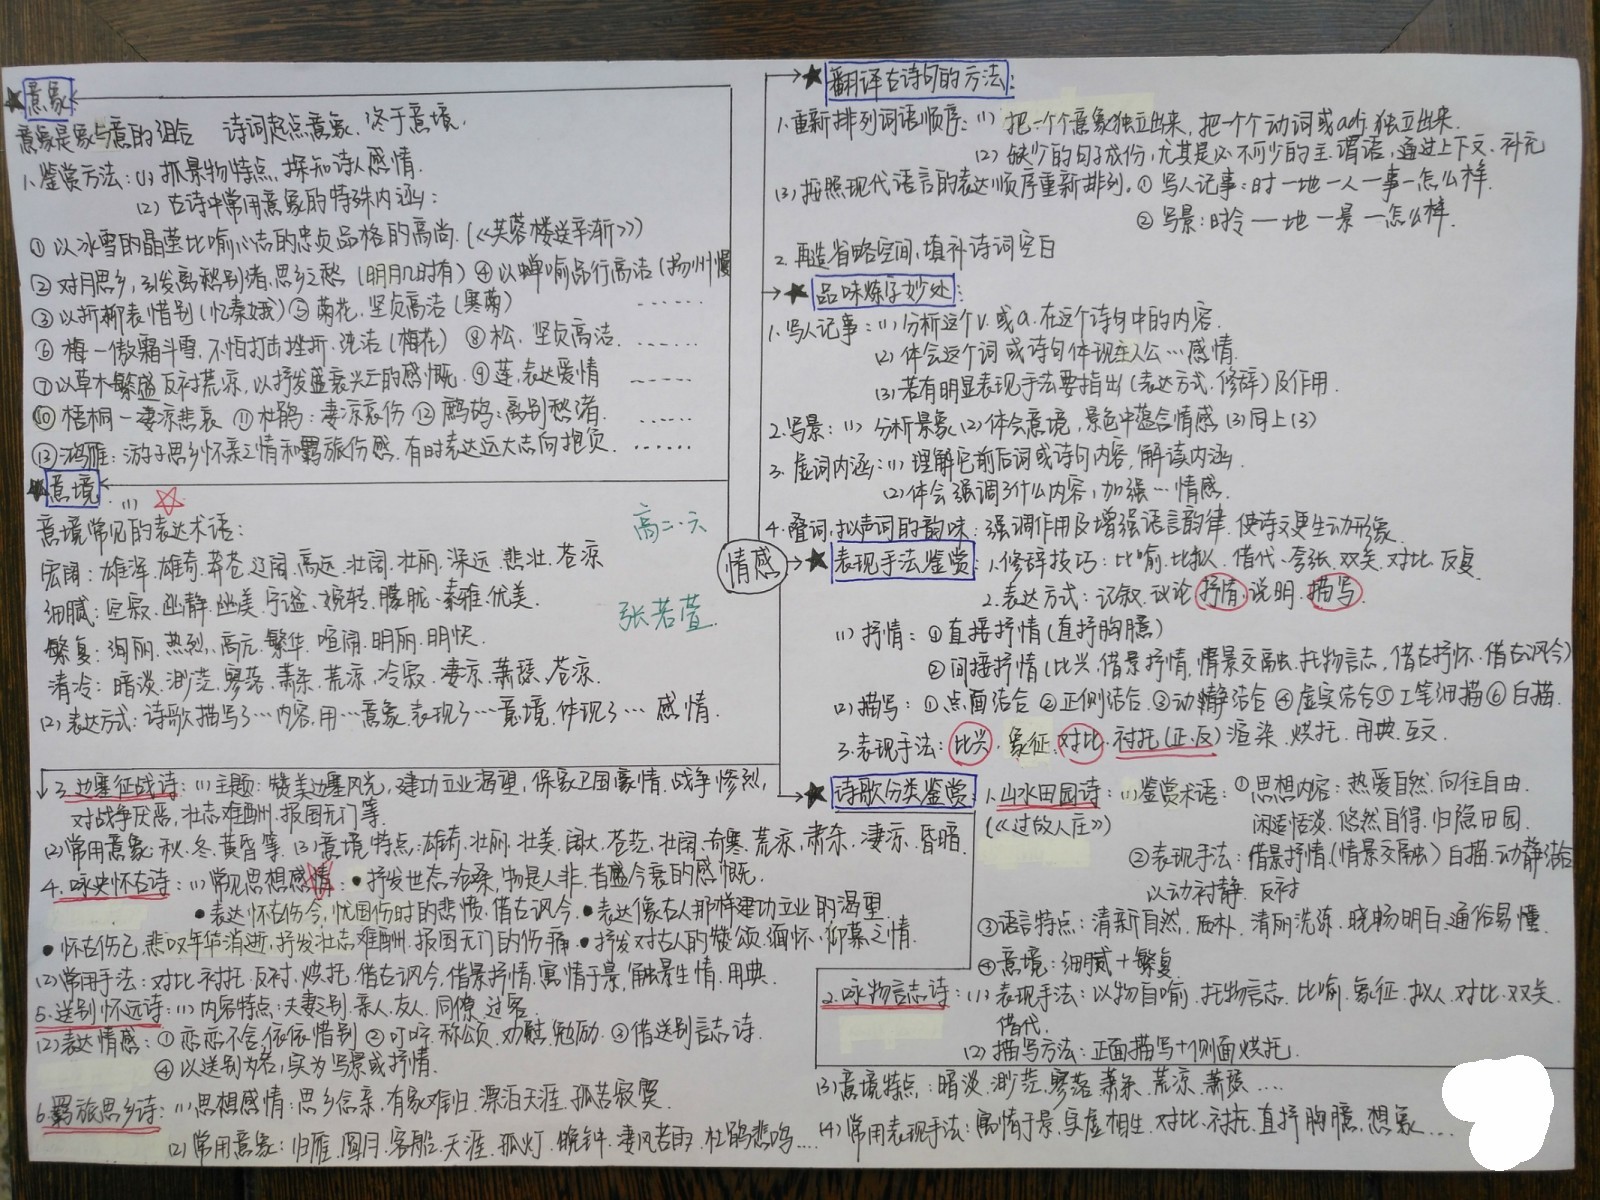 ★意象
意象是象与意的组合 诗词起点意象,终于意境.
1.鉴赏方法:(1)抓景物特点,探知诗人感情.
(2)古诗中常用意象的特殊内涵:
①以冰雪的晶莹比喻心志的忠贞品格的高尚.(《芙蓉楼送辛渐》)
②对月思乡,引发离愁别绪,思乡之愁(明月几时有)④以蝉喻品行高洁(扬州慢
③以折柳表惜别(忆秦娥)⑤菊花,坚贞高洁(寒菊)……
⑥梅—傲霜斗雪,不怕打击挫折.纯洁(梅花)⑧松,坚贞高洁.……
⑦以草木繁盛反衬荒凉,以抒发盛衰兴亡的感慨.⑨莲,表达爱情……
⑩梧桐—凄凉悲哀 ⑪杜鹃:凄凉哀伤 ⑫鹧鸪:离别愁绪.……
⑬鸿雁:游子思乡怀亲之情和羁旅伤感,有时表达远大志向抱负.……
★意境.(1)☆
意境常见的表达术语:
宏阔:雄浑.雄奇.莽苍.辽阔.高远.壮阔.壮丽.深远.悲壮.苍凉
细腻:空寂.幽静.幽美.宁谧.婉转.朦胧.素雅.优美.
繁复:绚丽.热烈.高亢.繁华.喧闹.明丽.明快.
清冷:暗淡.渺茫.寥落.萧条.荒凉.冷寂.凄凉.萧瑟.苍凉.
(2)表达方式:诗歌描写了…内容,用…意象,表现了…意境,体现了…感情.
高二·六
张若萱
情感
★翻译古诗句的方法:
1.重新排列词语顺序:(1)把一个个意象独立出来,把一个个动词或adj.独立出来.
(2)缺少的句子成份,尤其是必不可少的主.谓语,通过上下文.补充
(3)按照现代语言的表达顺序重新排列.①写人记事:时—地—人—事—怎么样.
②写景:时令—地—景—怎么样.
2.再造省略空间,填补诗词空白
★品味炼字妙处:
1.写人记事:(1)分析这个v.或a.在这个诗句中的内容.
(2)体会这个词或诗句体现主人公…感情.
(3)若有明显表现手法要指出(表达方式.修辞)及作用.
2.写景:(1)分析景象(2)体会意境,景色中蕴含情感(3)同上(3)
3.虚词内涵:(1)理解它前后词或诗句内容,解读内涵.
(2)体会强调了什么内容,加强…情感.
4.叠词.拟声词的韵味:强调作用及增强语言韵律.使诗文更生动形象.
★表现手法鉴赏:1.修辞技巧:比喻.比拟.借代.夸张.双关.对比.反复
2.表达方式:记叙.议论.抒情.说明.描写
(1)抒情:①直接抒情(直抒胸臆)
②间接抒情(比兴,借景抒情,情景交融,托物言志,借古抒怀.借古讽今)
(2)描写:①点面结合②正侧结合.③动静结合④虚实结合⑤工笔细描⑥白描.
3.表现手法:比兴.象征.对比.衬托(正.反)渲染.烘托.用典.互文.
★诗歌分类鉴赏
1.山水田园诗:(1)鉴赏术语:①思想内容:热爱自然.向往自由.
(《过故人庄》) 闲适恬淡.悠然自得.归隐田园.
②表现手法:借景抒情(情景交融)白描.动静结合
以动衬静.反衬
③语言特点:清新自然.质朴.清丽洗练.晓畅明白.通俗易懂.
④意境:细腻+繁复.
2.咏物言志诗:(1)表现手法:以物自喻.托物言志.比喻.象征.拟人.对比.双关.
借代.
(2)描写方法:正面描写+侧面烘托.
3.边塞征战诗:(1)主题:赞美边塞风光,建功立业渴望,保家卫国豪情.战争惨烈,
对战争厌恶,壮志难酬.报国无门等.
(2)常用意象:秋.冬.黄昏等.(3)意境特点:雄奇.壮丽.壮美.阔大.苍茫.壮阔.奇寒.荒凉.肃杀.凄凉.昏暗.
4.咏史怀古诗:(1)常见思想感情☆:●抒发世态沧桑,物是人非.昔盛今衰的感慨.
●表达怀古伤今,忧国伤时的悲愤.借古讽今.●表达像古人那样建功立业的渴望.
●怀古伤己,悲叹年华消逝.抒发壮志难酬.报国无门的伤痛.●抒发对古人的赞颂.缅怀.仰慕之情.
(2)常用手法:对比.衬托.反衬.烘托.借古讽今,借景抒情.寓情于景,触景生情.用典.
5.送别怀远诗:(1)内容特点:夫妻之别.亲人.友人.同僚.过客.
(2)表达情感:①恋恋不舍,依依惜别②叮咛.称颂.劝慰.勉励.③借送别言志诗.
④以送别为名,实为写景或抒情.
6.羁旅思乡诗:(1)思想感情:思乡念亲,有家难归.漂泊天涯.孤苦寂寞.
(2)常用意象:归雁.圆月.客船.天涯.孤灯.晚钟.凄风苦雨.杜鹃悲鸣….
(3)意境特点:暗淡.渺茫.寥落.萧条.荒凉.萧瑟….
(4)常用表现手法:寓情于景.虚实相生.对比.衬托.直抒胸臆.想象….